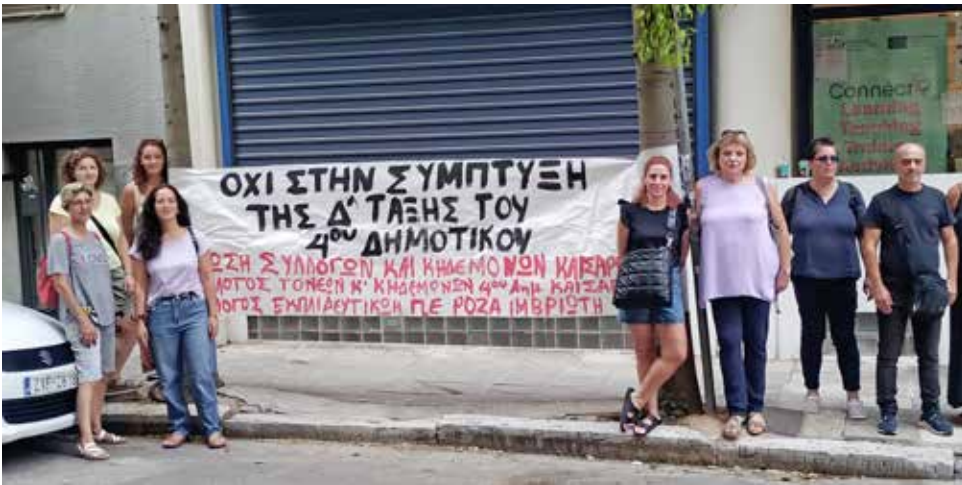 ΟΧΙ ΣΤΗΝ ΣΥΜΠΤΥΞΗ
ΤΗΣ Δ' ΤΑΞΗΣ ΤΟΥ
4ου ΔΗΜΟΤΙΚΟΥ
ΩΣΗ ΣΥΛΛΟΓΩΝ ΚΑΙ ΚΗΔΕΜΟΝΩΝ ΚΑΙΣΑΡ
ΛΟΓΟΣ ΓΟΝΕΩΝ Κ' ΚΗΔΕΜΟΝΩΝ 4ου Δημ ΚΑΙΣΑΡ
ΛΟΓΟΣ ΕΚΠΑΙΔΕΥΤΙΚΩΝ Π.Ε ΡΟΖΑ ΙΜΒΡΙΩΤΗ
Connect
Learning
Teaching